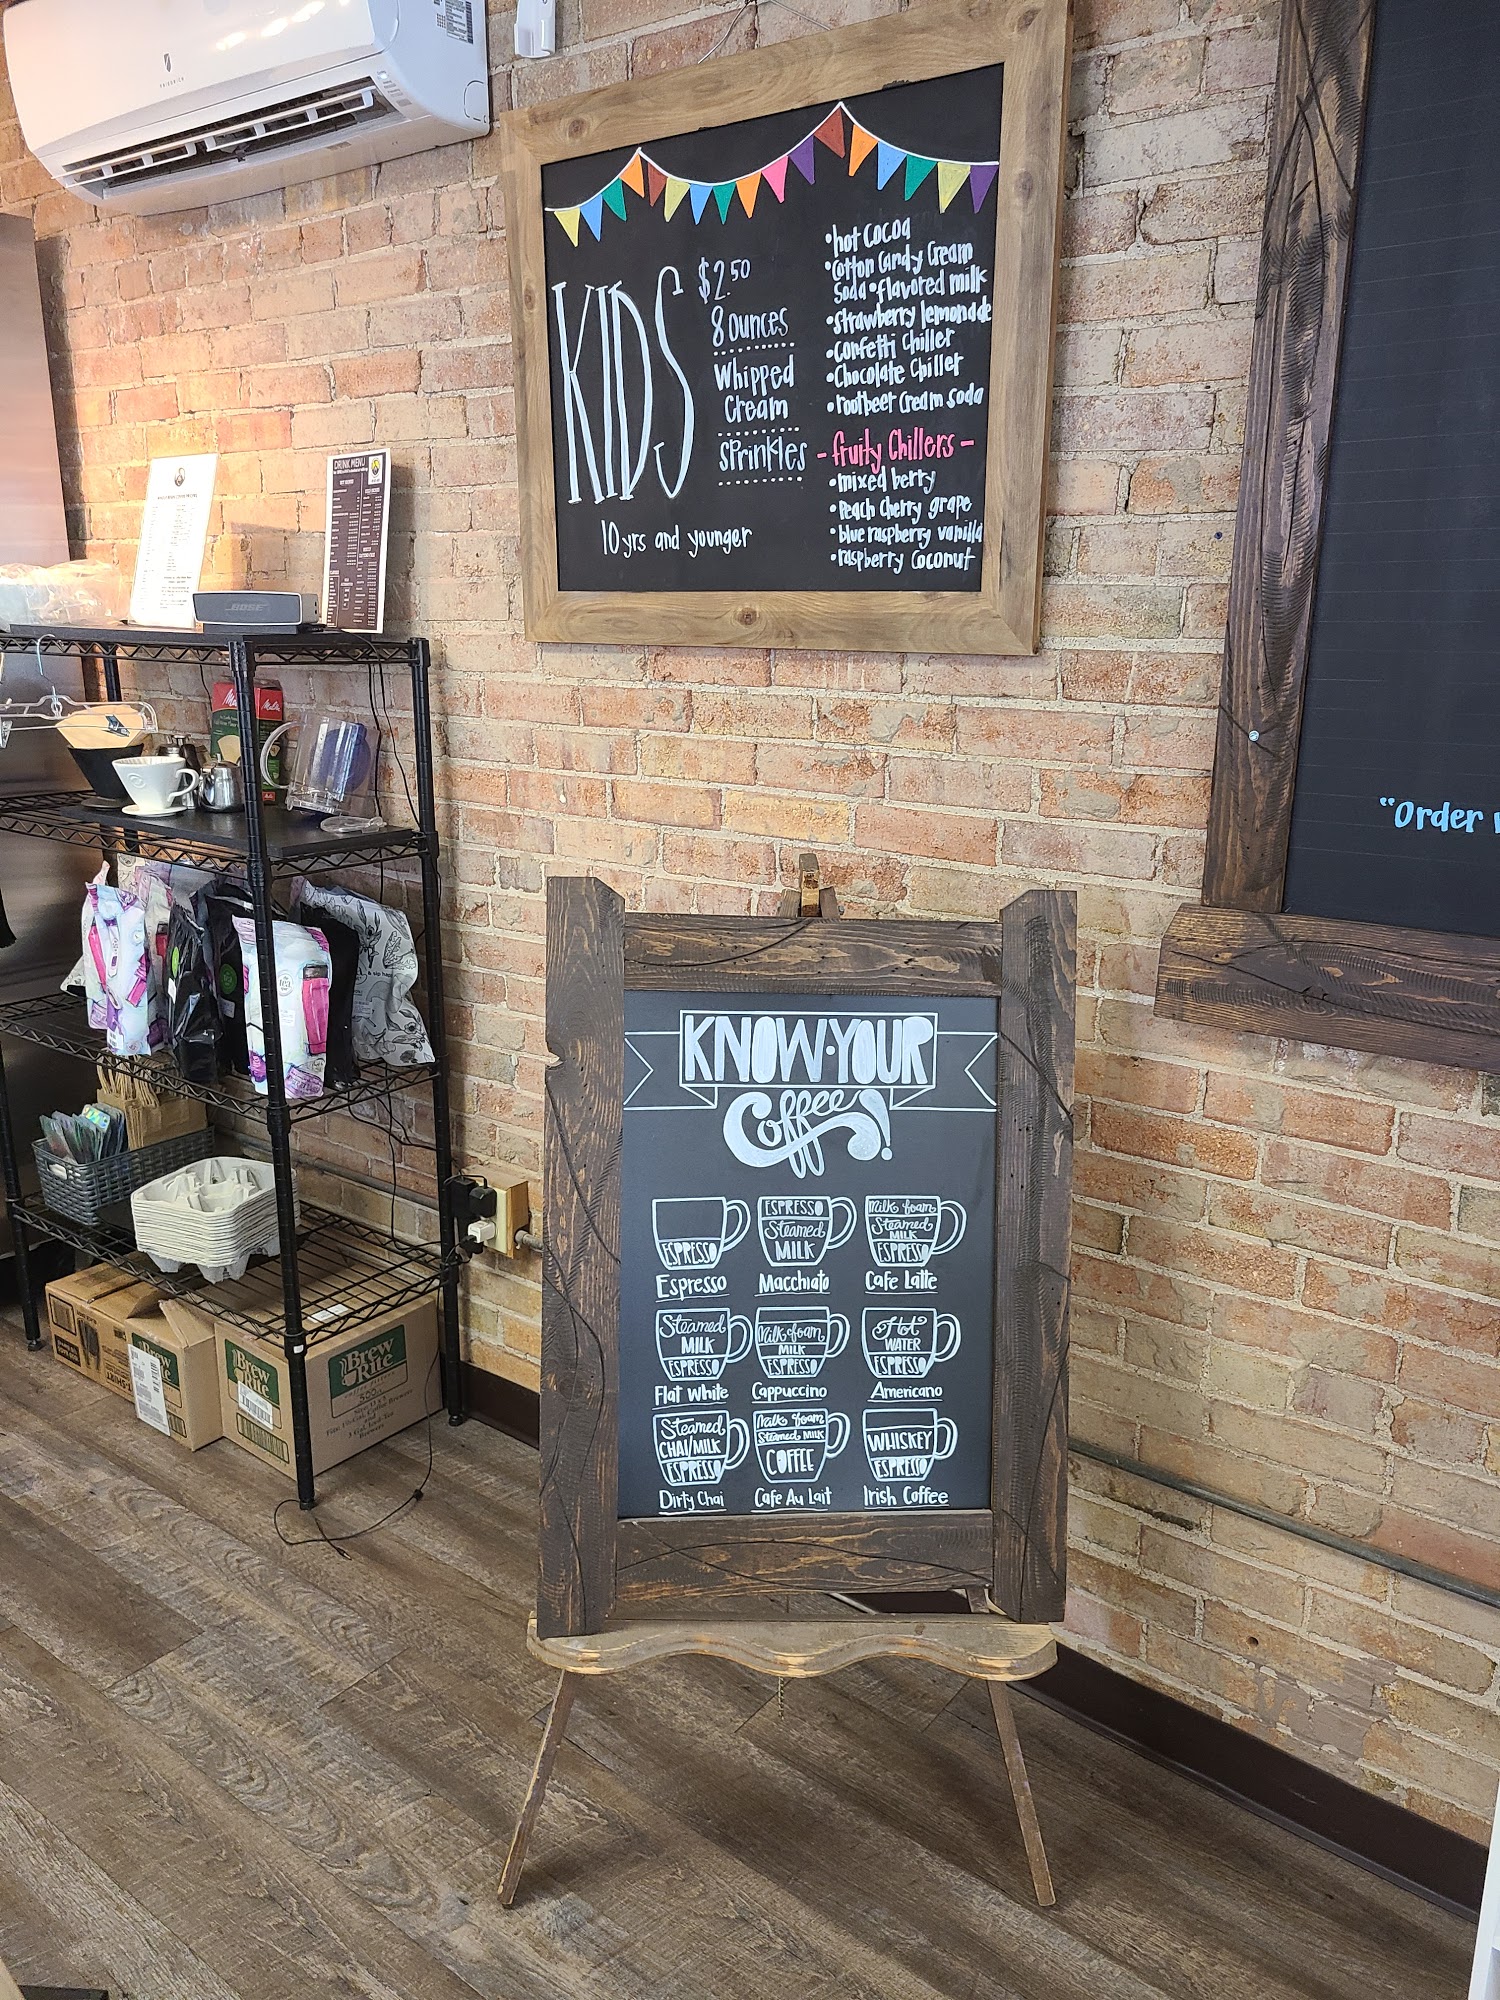 KIDS
$2.50
8 ounces
Whipped
Cream
sprinkles
10 yrs and younger
•hot cocoa
•Cotton Candy Cream
Soda •flavored milk
•strawberry lemonade
•Confetti Chiller
•Chocolate Chiller
•rootbeer cream soda
- fruity Chillers -
•mixed berry
•Peach Cherry grape
•blue raspberry vanilla
•raspberry Coconut
"Order
DRINK MENU
BOSE
KNOW•YOUR
Coffee!
ESPRESSO
Espresso
ESPRESSO
Steamed
MILK
Macchiato
Milk foam
Steamed
MILK
ESPRESSO
Cafe Latte
Steamed
MILK
ESPRESSO
Flat White
Milk foam
MILK
ESPRESSO
Cappuccino
Hot
WATER
ESPRESSO
Americano
Steamed
CHAI/MILK
ESPRESSO
Dirty Chai
Milk foam
Steamed MILK
COFFEE
Cafe Au Lait
WHISKEY
ESPRESSO
Irish Coffee
Brew
Rite
Brew
Rite
500